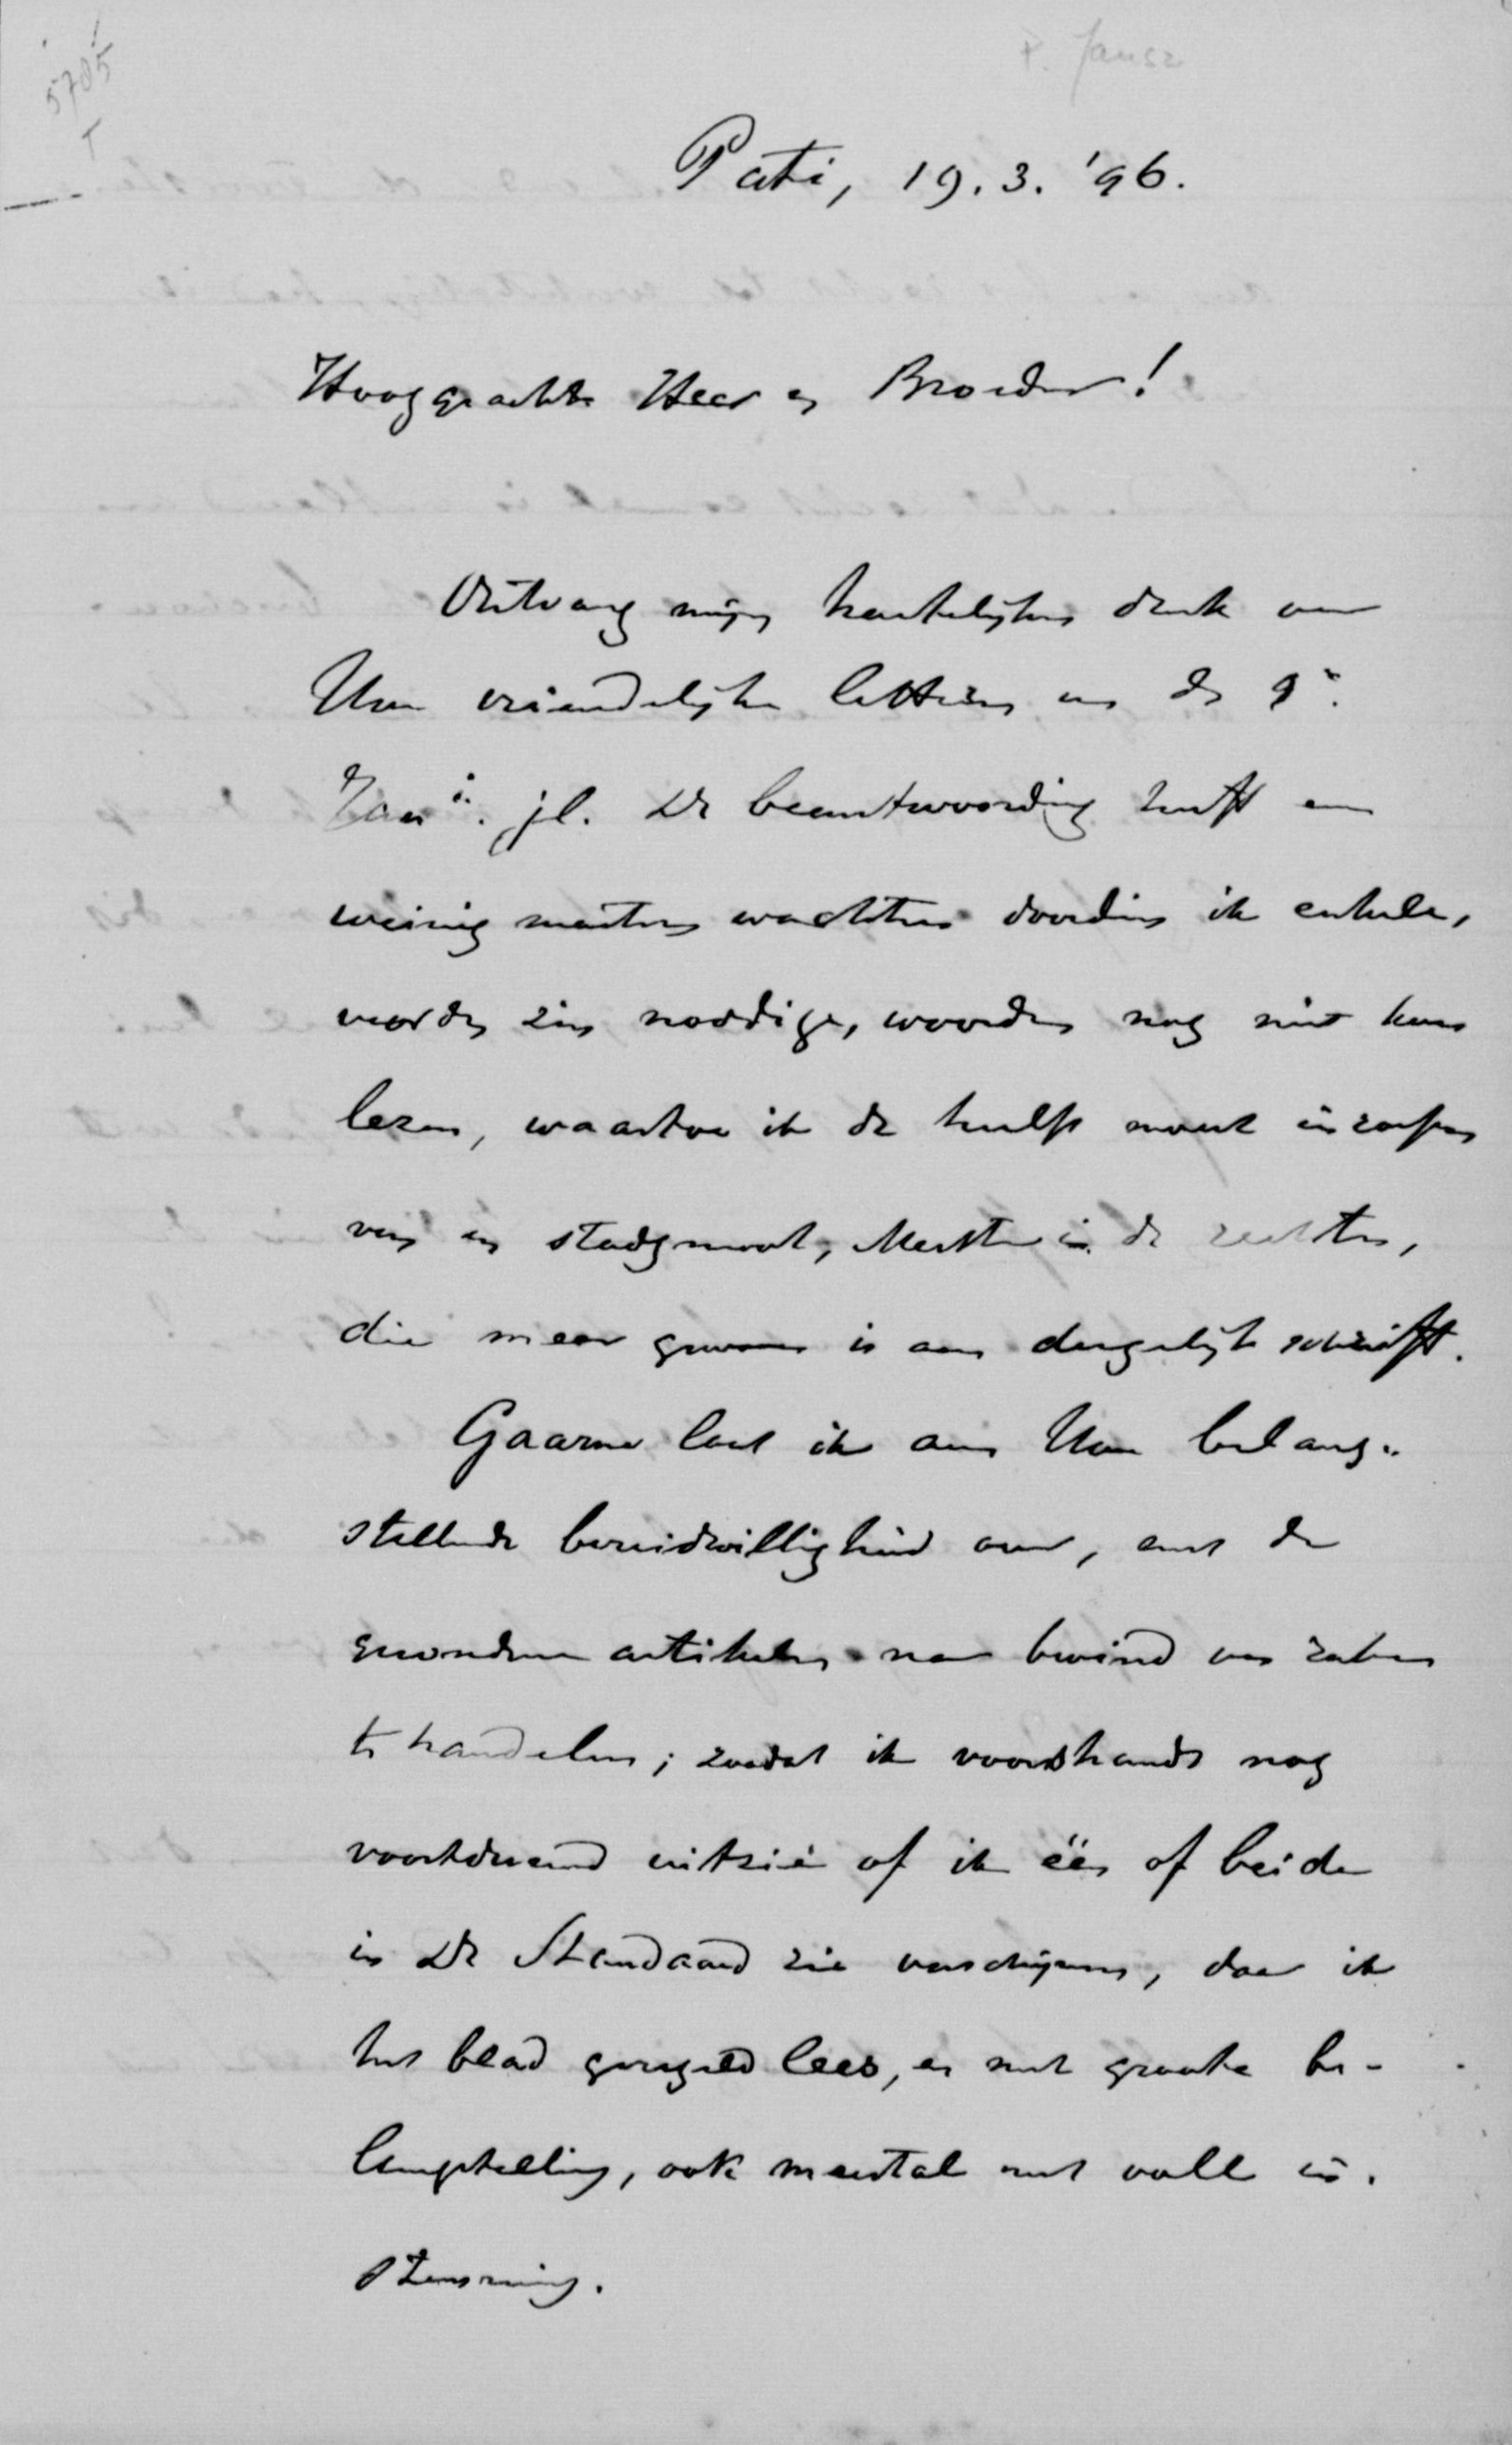 5785
T
P. Jansz
Pati, 19.3.'96.
Hooggeachte Heer en Broeder!
Ontvang mijn hartelijken dank voor
Uwe vriendelijke letteren van den 9n.
Jani. jl. De beantwoording heeft een
weinig moeten wachten doordien ik enkele,
voor den zin noodige, woorden nog niet kon
lezen, waartoe ik de hulp moest inroepen
van een stadgenoot, Meester in de rechten,
die meer gewoon is aan dergelijk schrift.
Gaarne laat ik aan Uwe belang-
stellende bereidwilligheid over, met de
gezonden artikelen naar bevind van zaken
te handelen; zoodat ik voorshands nog
voortdurend uitzië of ik één of beide
in De Standaard zie verschijnen, daar ik
het blad geregeld lees, en met groote be-
langstelling, ook meestal met volle in-
stemming.